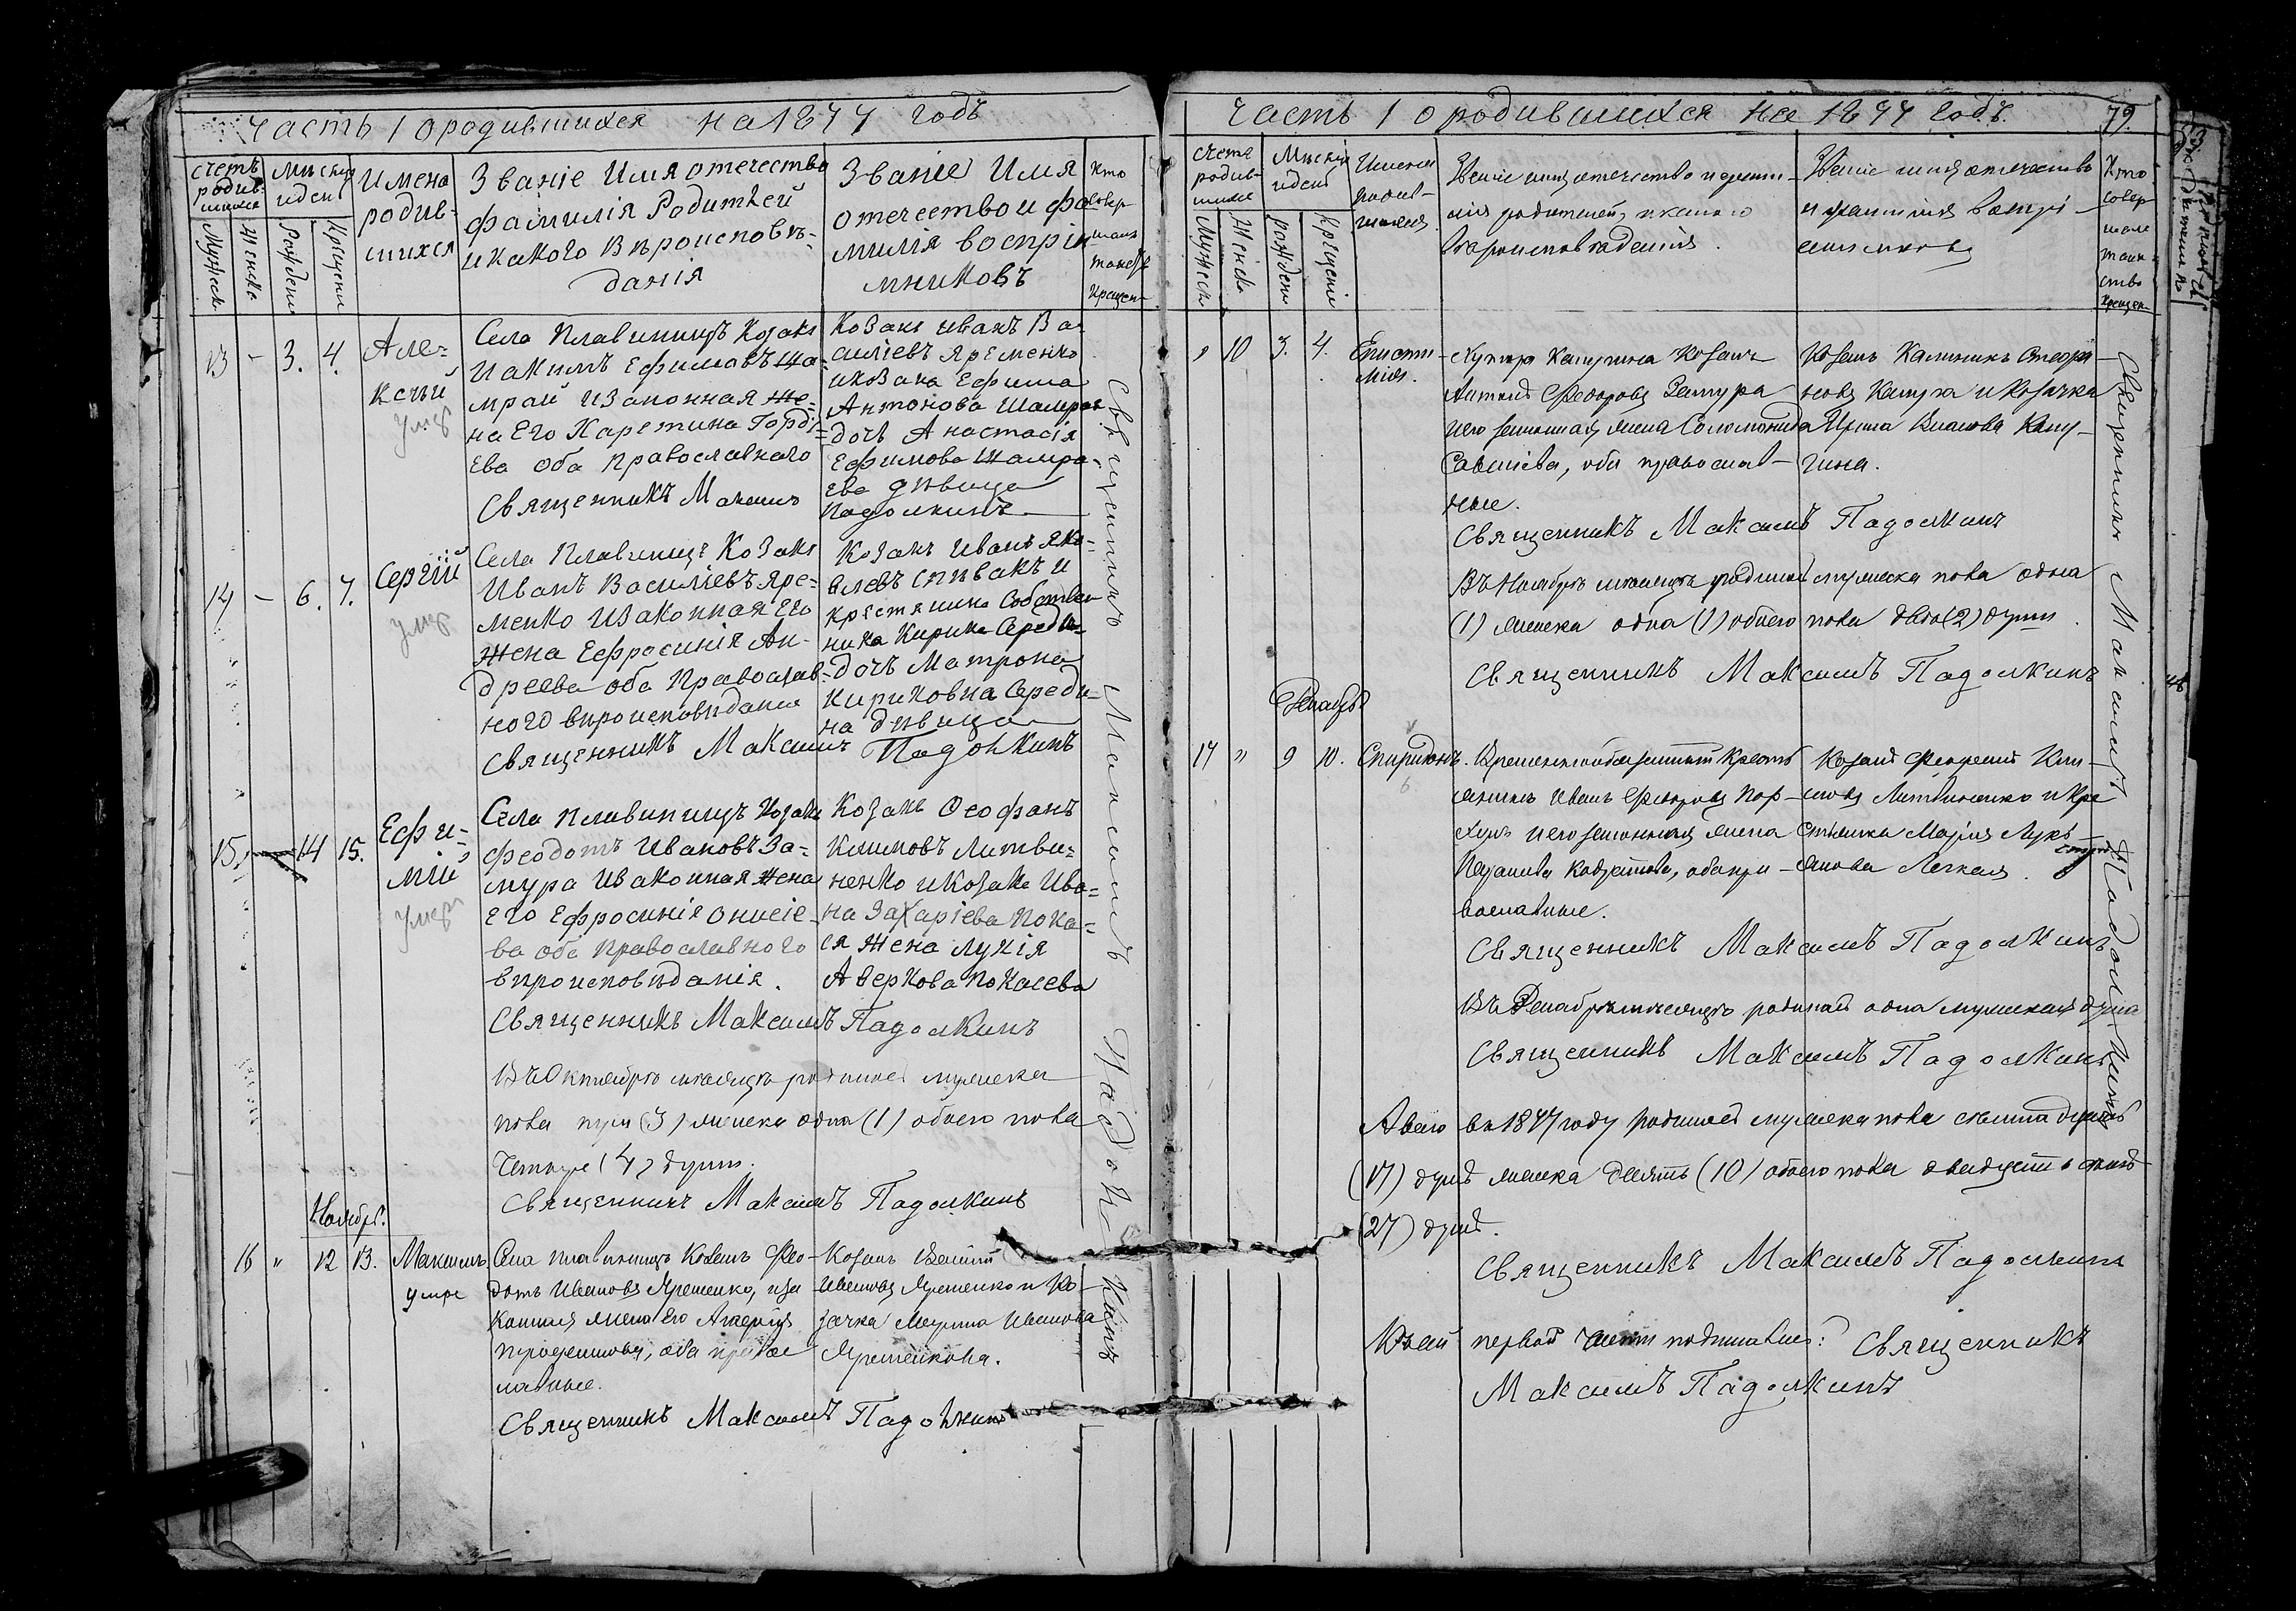 Часть 1 о родившихся на 1877 годъ
счетъ родив-шихся
Мужеск
Женск
Мѣсяцъ и день
Рожден
Крещени
Имена родив-шихся
Званіе Имя отечество
фамилія Родителей
и какого Вѣроисповѣ-
данія
Званіе Имя
отечество и фа
милія воспріе
мниковъ
Кто
совер
шалъ
таинст
крещен
13 - 3. 4. Але=
ксѣй
умер
Села Плавинищъ Козакъ
Иакимъ Ефимовъ Ша=
мрай и законная же=
на Его Харетина Горді=
Ева оба Православнаго
Священникъ Максимъ Падолкинъ
Козакъ Иванъ Ва
силіевъ Яременко
и козака Ефима
Антонова Шамрая
дочь Анастасія
Ефимова Шамра=
ева дѣвица
14 - 6. 7. Сергій
умер
Села Плавинищъ Козакъ
Иванъ Василіевъ Яре=
менко и законная Его
жена Ефросинія Ан-
дреева оба Православ=
ного вѣроисповѣданія
Козакъ Иванъ Яко=
влевъ Спѣвакъ и
крестянина Собствен
ника Кирика Середи=
дочь Матрона
Кириковна Середи=
на дѣвица
Священникъ Максимъ Падолкинъ
15. 14 15. Ефи=
мій
умер
Села Плавинищъ Козакъ
Феодотъ Ивановъ За=
мура и законная жена
Его Ефросинія Онисіе-
ва оба Православного
вѣроисповѣданія.
Козакъ Феофанъ
Климовъ Литви=
ненко и Козака Ива=
на Захаріева Пока=
ся жена Лукія
Аверкова Покасева
Священникъ Максимъ Падолкинъ
Въ Октябрѣ мѣсяцѣ родилось мужеска
пола три (3) женска одна (1) обоего пола
четыре (4) души.
Священникъ Максимъ Падолкинъ
Ноябрь.
16 " 12 13. Максимъ
умре
Села Плавинищъ Козакъ Фео-
дотъ Ивановъ Яременко, и за
конная жена его Агафія
оба правос
лавные.
Козакъ
Ивановъ Яременко и Ко-
зачка Марина Иванова
Яременкова.
Священникъ Максимъ Падолкинъ
Священникъ Максимъ Падолкинъ
Часть 1 о родившихся на 1877 годъ. 79.
Счетъ
родив-
шихся
Мужеск
Женск
Мѣсяцъ
и день
Рожден
Крещеніе
Имена
родив-
шихся
Званіе имя отечество и фами-
лія родителей, и какого
вѣроисповѣданія.
Званіе имя отечество
и фамилія воспрі-
емниковъ
Кто
совер
шалъ
таин
ство
крещен
" 10 3. 4. Еписти-
мія.
Хутора Капугина Козакъ
Антоній Феодоровъ Замура
и его законная жена Соломонида
Савиліева, оба православ-
ные.
Козакъ Калиникъ
новъ Капуга и Козачка
Ирина Власова Капу-
гина.
Священникъ Максимъ Падолкинъ
Въ Ноябрѣ мѣсяцѣ родилось мужеска пола одна
(1) женска одна (1) обоего пола двѣ (2) души.
Священникъ Максимъ Падолкинъ
Декабрь
17 " 9 10. Спиридонъ.
Временнообязанный Кресть
янинъ Иванъ Феодоровъ Пор-
хунъ и его законная жена
оба пра-
вославные.
Козакъ
Климовъ Литвиненко и Кре
стьянка Марія Лукі-
янова Легкая.
Священникъ Максимъ Падолкинъ
Въ Декабрѣ мѣсяцѣ родилась одна мужеская душа
Священникъ Максимъ Падолкинъ
А всего въ 1877 году родилось мужеска пола семнадцать
(17) душъ женска десять (10) обоего пола двадцать семь
(27) душъ.
Священникъ Максимъ Падолкинъ
Къ сей первой части подписался: Священникъ
Максимъ Падолкинъ
Священникъ Максимъ Падолкинъ